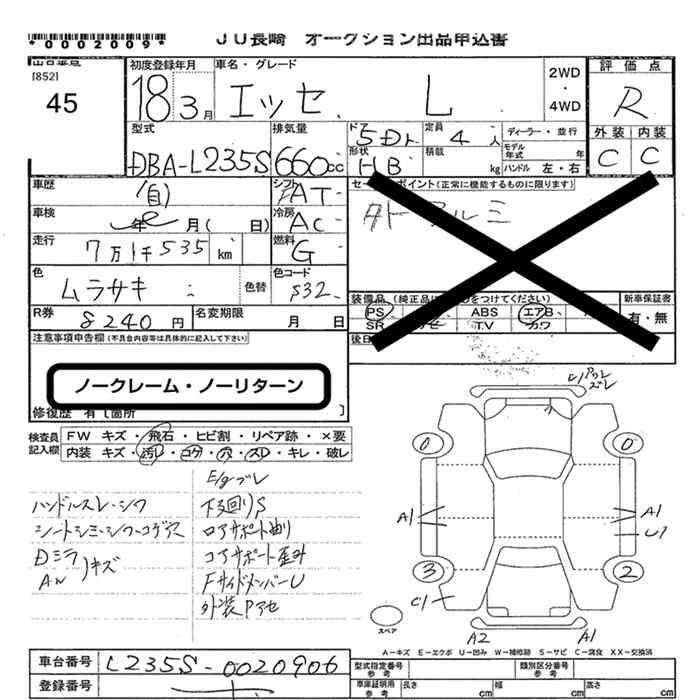 *0002009*
JU長崎 オークション出品申込書
[852]
45
初度登録年月 車名・グレード 2WD ・ 4WD 評価点
18 3月 エッセ L R
型式 排気量 ドア 定員 ディーラー・並行 外装 内装
DBA-L235S 660cc 5Dr 4人 モデル年式 年 C C
形状 積載 kg ハンドル 左・右
HB
車歴 シフト セールスポイント(正常に機能するものに限ります)
(自) FAT
車検 年 月( 日) 冷房 AC アルミ
走行 7万1千535 km 燃料 G
色 ムラサキ 色替 色コード S32
装備品 (純正品に○をつけてください) 新車保証書
PS ABS エアB 有・無
SR TV カワ
R券 8240円 名変期限 月 日
注意事項申告欄(不具合内容等は具体的に記入して下さい)
ノークレーム・ノーリターン
修復歴 有[箇所 ]
検査員記入欄 FW キズ・飛石・ヒビ割・リペア跡・×要
内装 キズ・汚レ・コゲ・穴・スレ・キレ・破レ
E/gブレ
ハンドルスレ・シワ 下廻りS
シートシミ・シワ・コゲ穴 ロアサポート曲り
Dミラ コアサポート歪み
AN )キズ FサイドメンバーU
外装Pアセ
U1 ズレ
0 0
A1 A1
U1
3 2
C1
スペア
A2 A1
A-キズ E-エクボ U-凹み W-補修跡 S-サビ C-腐食 XX-交換済
車台番号 L235S-0020906 型式指定番号 参考 類別区分番号 参考
登録番号 車庫証明用 参考 長さ cm 幅 cm 高さ cm